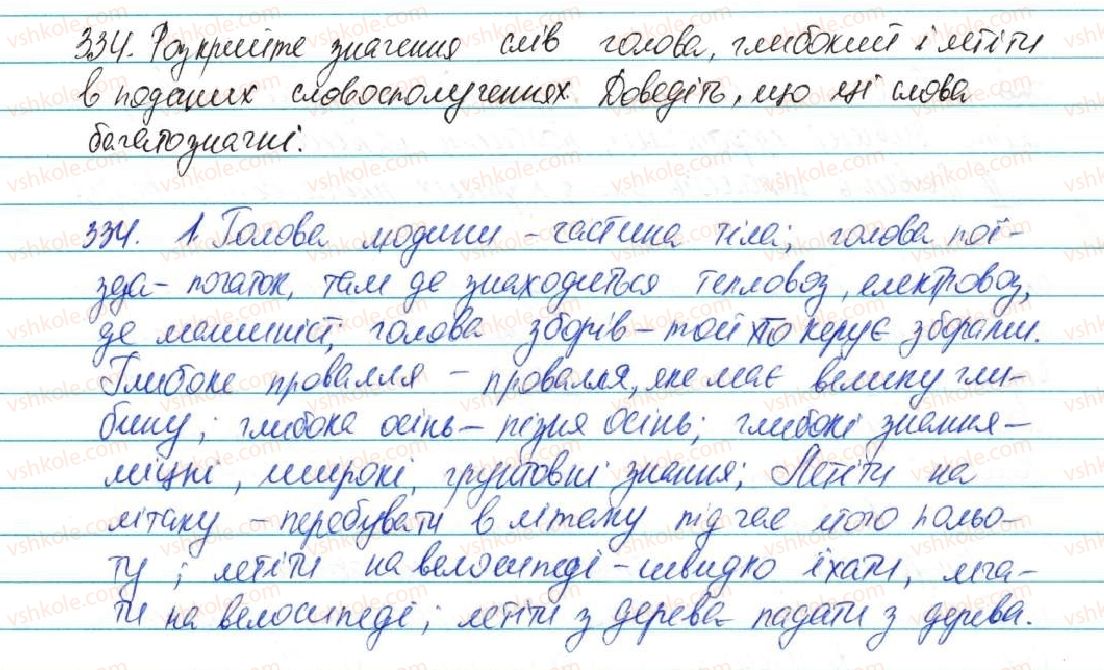 334. Розкрийте значення слів голова, глибокий і летіти
в поданих словосполученнях. Доведіть, що ці слова
багатозначні.
334. 1. Голова людини – частина тіла; голова пої-
зда – початок, там де знаходиться тепловоз, електровоз,
де машиніст; голова зборів – той хто керує зборами.
Глибоке провалля – провалля, яке має велику гли-
бину; глибока осінь – пізня осінь; глибокі знання –
міцні, широкі, грунтовні знання; Летіти на
літаку – перебувати в літаку під час його польо-
ту; летіти на велосипеді – швидко їхати, мча-
ти на велосипеді; летіти з дерева – падати з дерева.